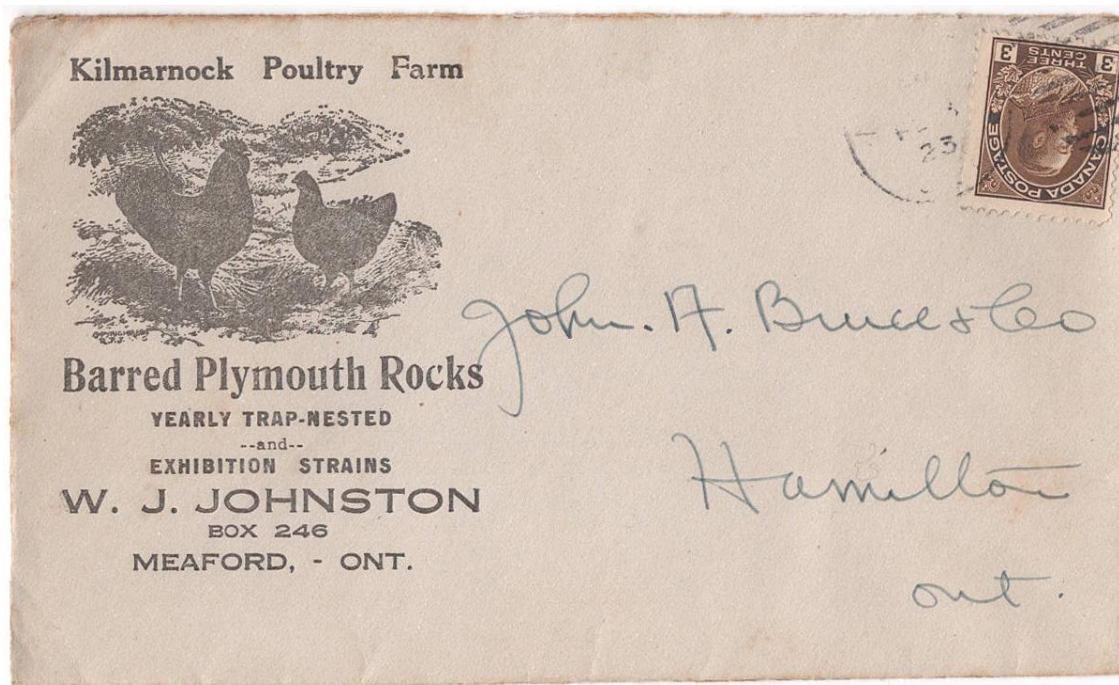 Kilmarnock Poultry Farm
Barred Plymouth Rocks
YEARLY TRAP-NESTED
--and--
EXHIBITION STRAINS
W. J. JOHNSTON
BOX 246
MEAFORD, - ONT.
3 THREE CENTS 3
CANADA POSTAGE
23
John. A. Bruce & Co
Hamilton
ont.